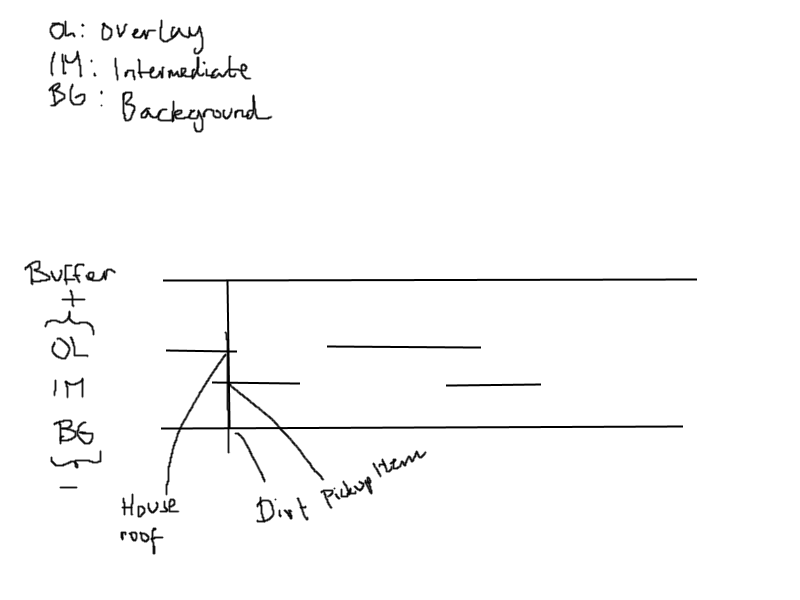 OL: Overlay
IM: Intermediate
BG: Background
Buffer
+
OL
IM
BG
-
House
roof
Dirt
Pickup Item